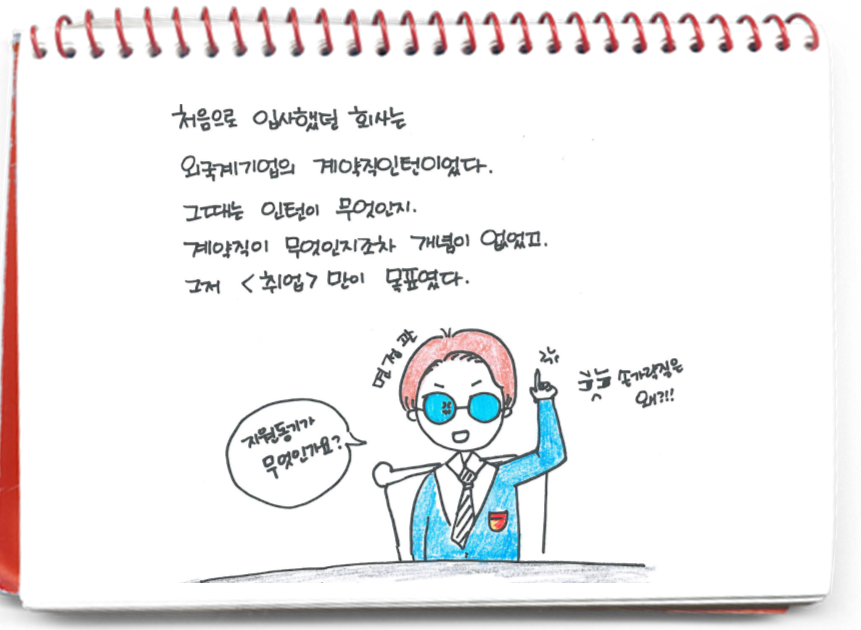 처음으로 입사했던 회사는
외국계기업의 계약직인턴이었다.
그때는 인턴이 무엇인지.
계약직이 무엇인지조차 개념이 없었고.
그저 <취업> 만이 목표였다.
면접관
지원동기가
무엇인가요?
손가락질은
왜?!!